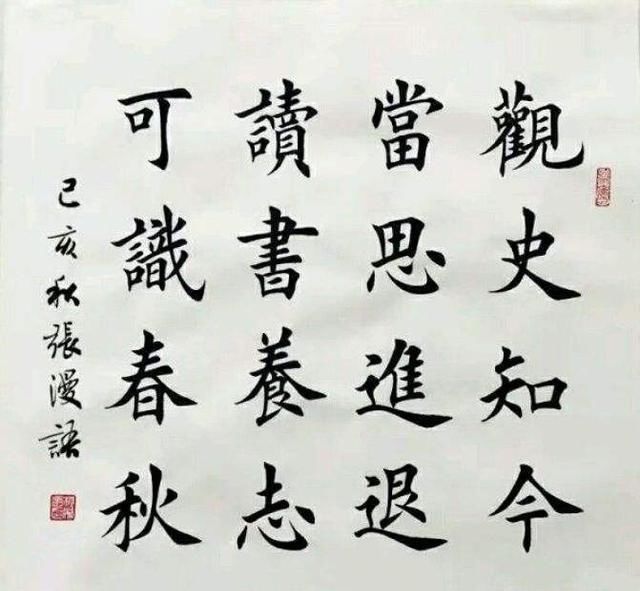 觀史知今
當思進退
讀書養志
可識春秋
己亥秋張漫語